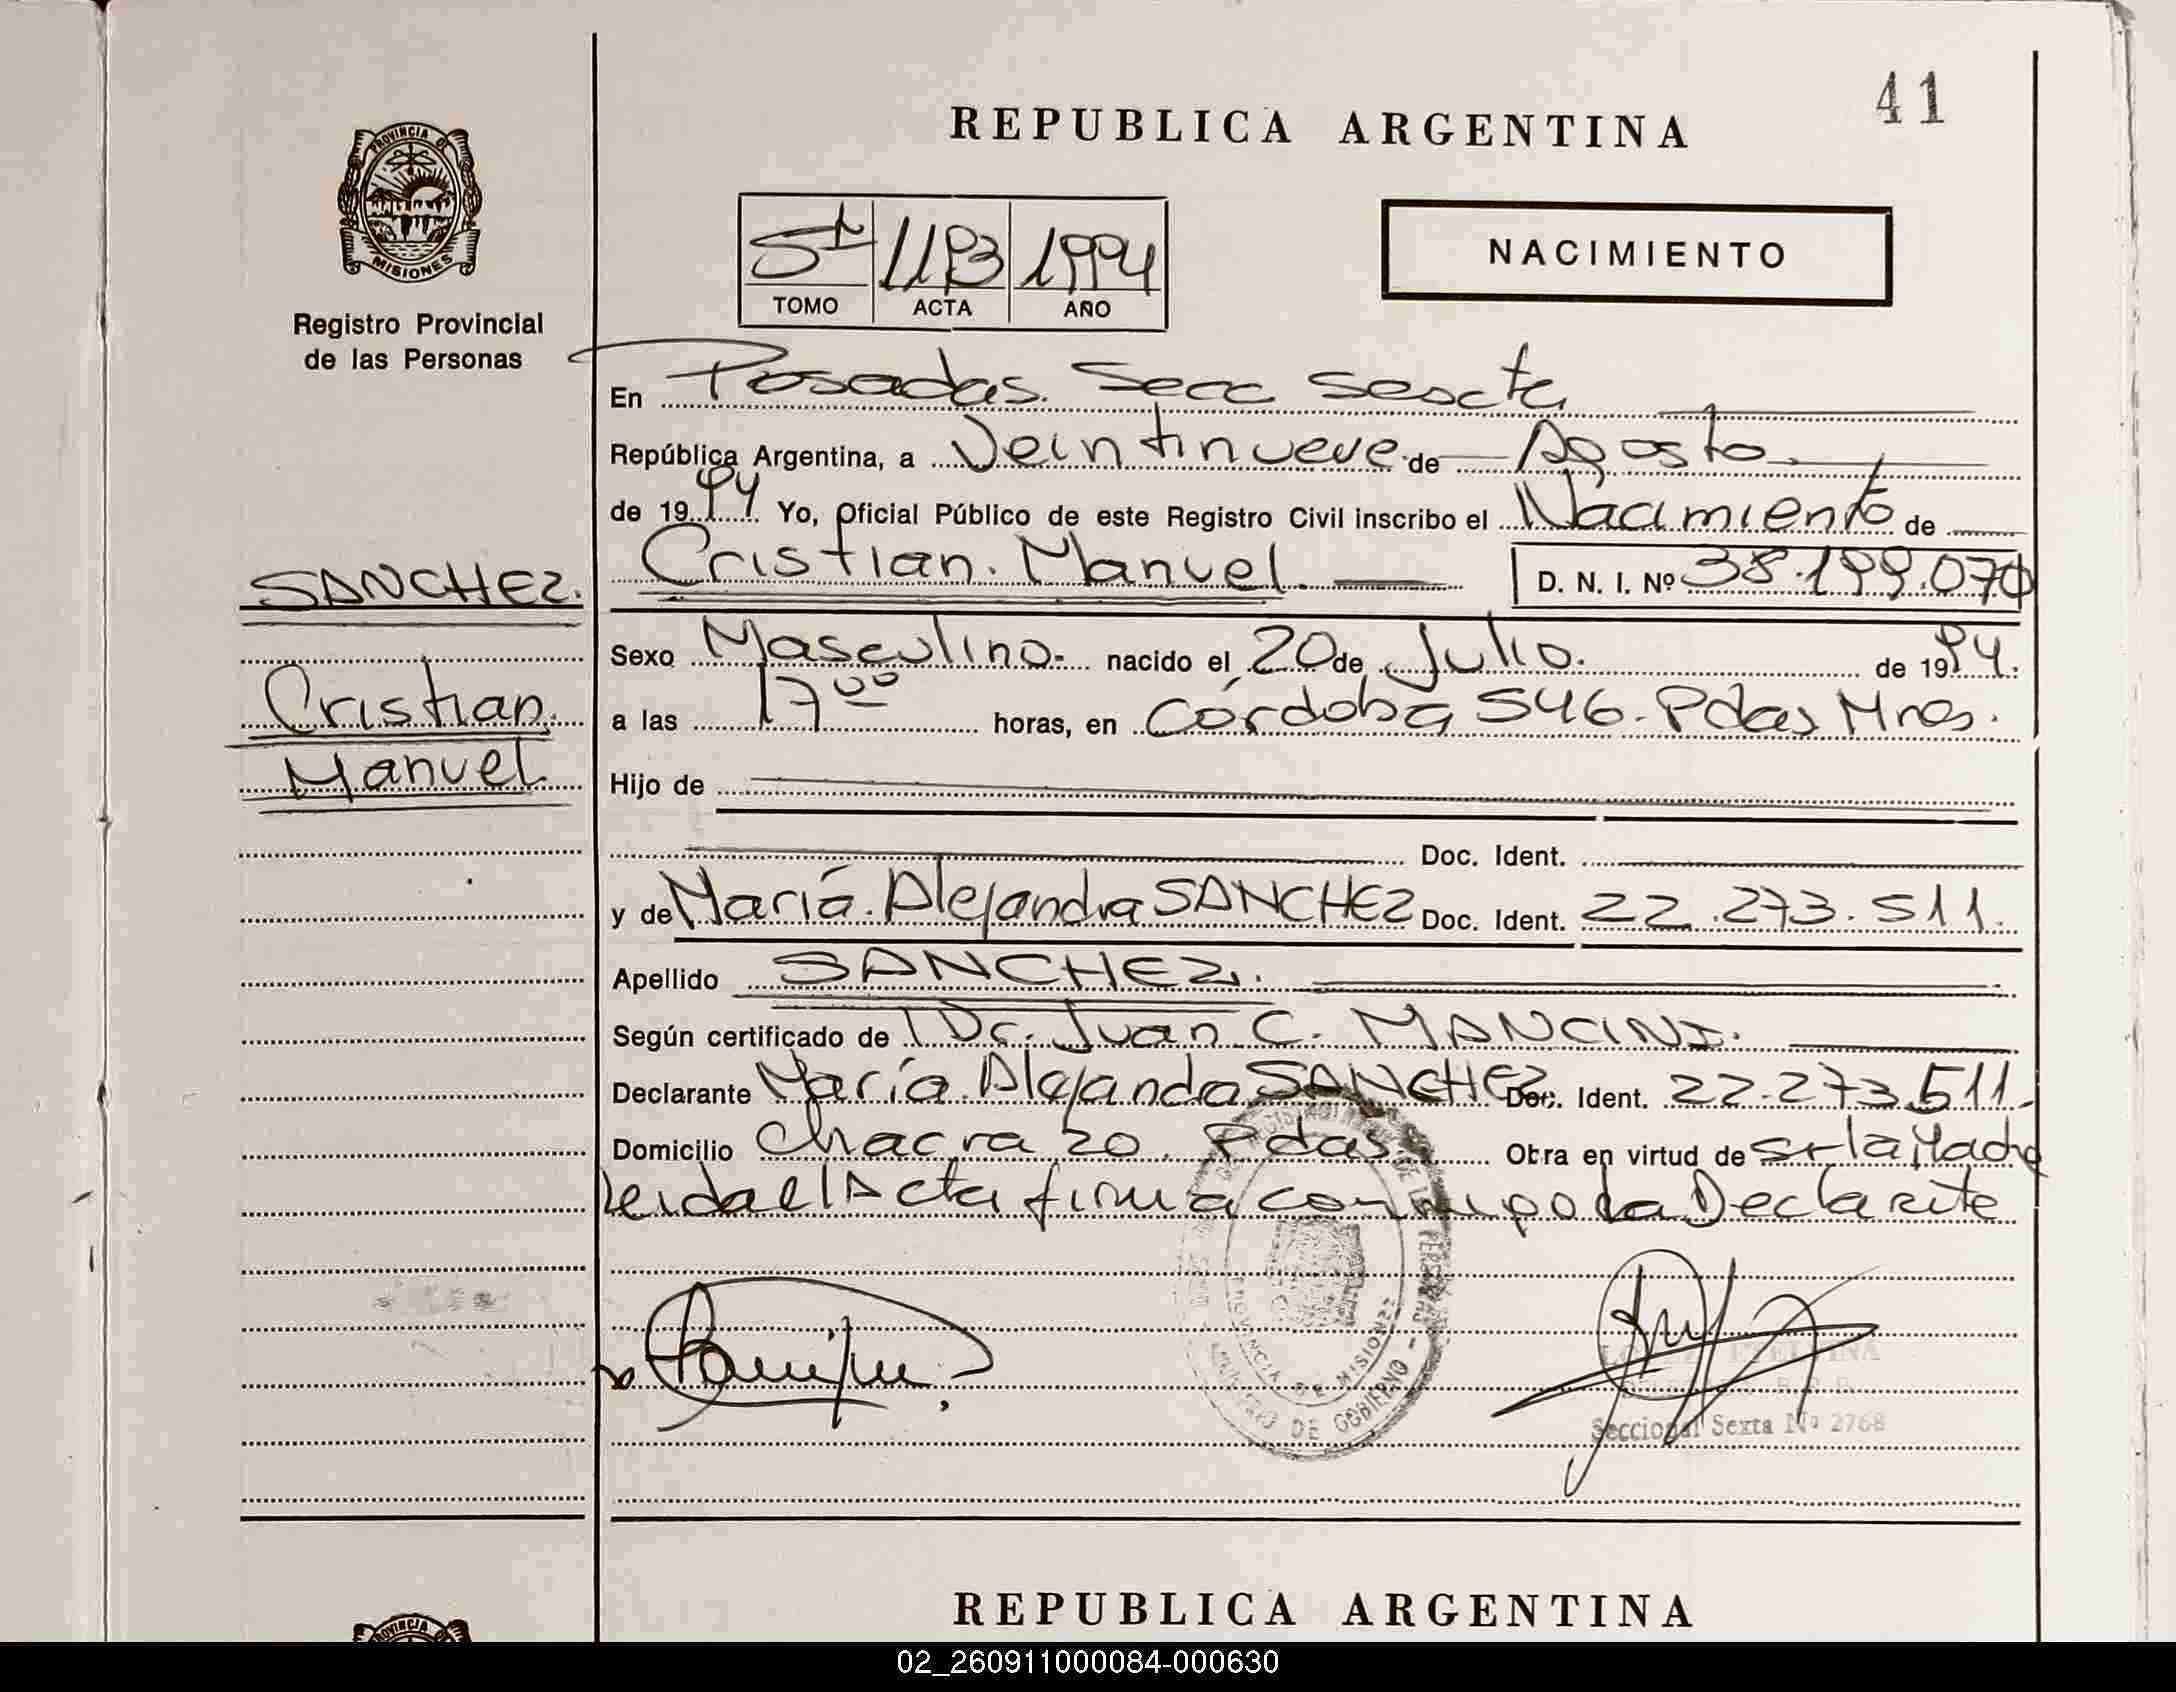 41
REPUBLICA ARGENTINA
PROVINCIA DE
MISIONES
Registro Provincial
de las Personas
NACIMIENTO
5to 1193 1994
TOMO ACTA AÑO
En Posadas. Secc Sexta
República Argentina, a Veintinueve de Agosto.
de 1994 Yo, Oficial Público de este Registro Civil inscribo el Nacimiento de
SANCHEZ.
Cristian
Manuel.
Cristian. Manuel. D. N. I. Nº 38.199.070
Sexo Masculino. nacido el 20 de Julio. de 1994.
a las 17 00 horas, en Córdoba 546. Pdas Mnes.
Hijo de
Doc. Ident.
y de María. Alejandra SANCHEZ Doc. Ident. 22.273.511.
Apellido SANCHEZ.
Según certificado de Dr. Juan C. MANCINI.
Declarante María. Alejandra SANCHEZ Doc. Ident. 22.273.511.
Domicilio Chacra 20. Pdas. Obra en virtud de ser la Madre
Leida el Acta firma conmigo la Declarante
PROVINCIA DE MISIONES
MINISTERIO DE GOBIERNO
Seccional Sexta Nº 2768
REPUBLICA ARGENTINA
02_260911000084-000630